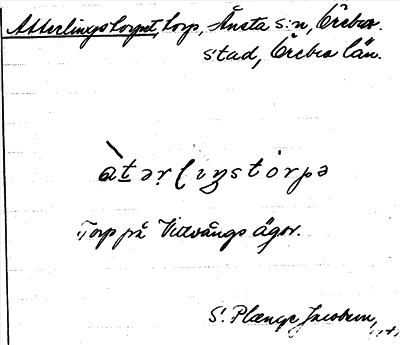 Atterlingstorpet, torp, Ånsta s:n, Örebro
stad, Örebro län.
àtərlıŋstórpə
Torp på Vitvångs ägor.
S. Plænge Jacobson,